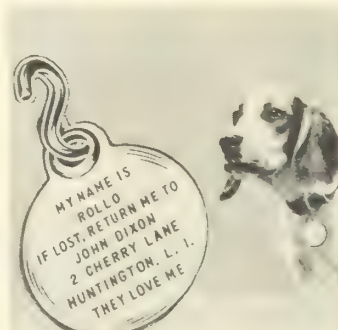 MY NAME IS
ROLLO
IF LOST, RETURN ME TO
JOHN DIXON
2 CHERRY LANE
HUNTINGTON, L. I.
THEY LOVE ME